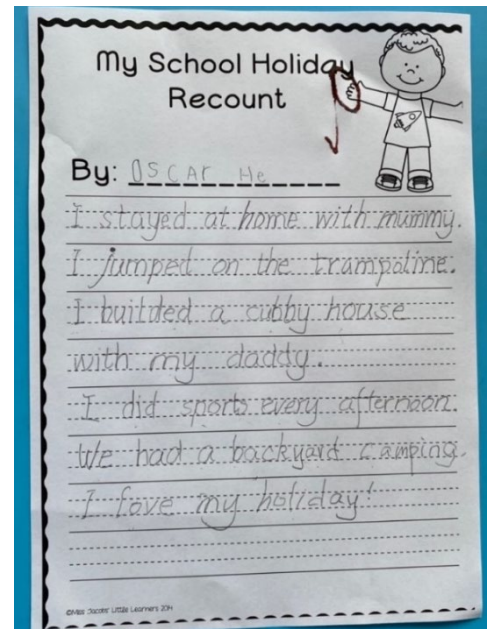 My School Holiday
Recount
By: Oscar He
I stayed at home with mummy.
I jumped on the trampoline.
I builded a cubby house
with my daddy.
I did sports every afternoon.
We had a backyard camping.
I love my holiday!
©Miss Jacobs Little Learners 2014